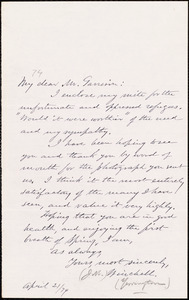 My dear Mr. Garrison:
I enclose my mite for the
unfortunate and oppressed refugees.
"Would it were worthier" of the need
and my sympathy.
I have been hoping to see
you and thank you by word of
mouth for the photograph you sent
us. I think it the most entirely
satisfactory of the many I have
seen, and value it very highly.
Hoping that you are in good
health, and enjoying the first
breath of Spring, I am,
As always
Yours most sincerely,
April 21/79